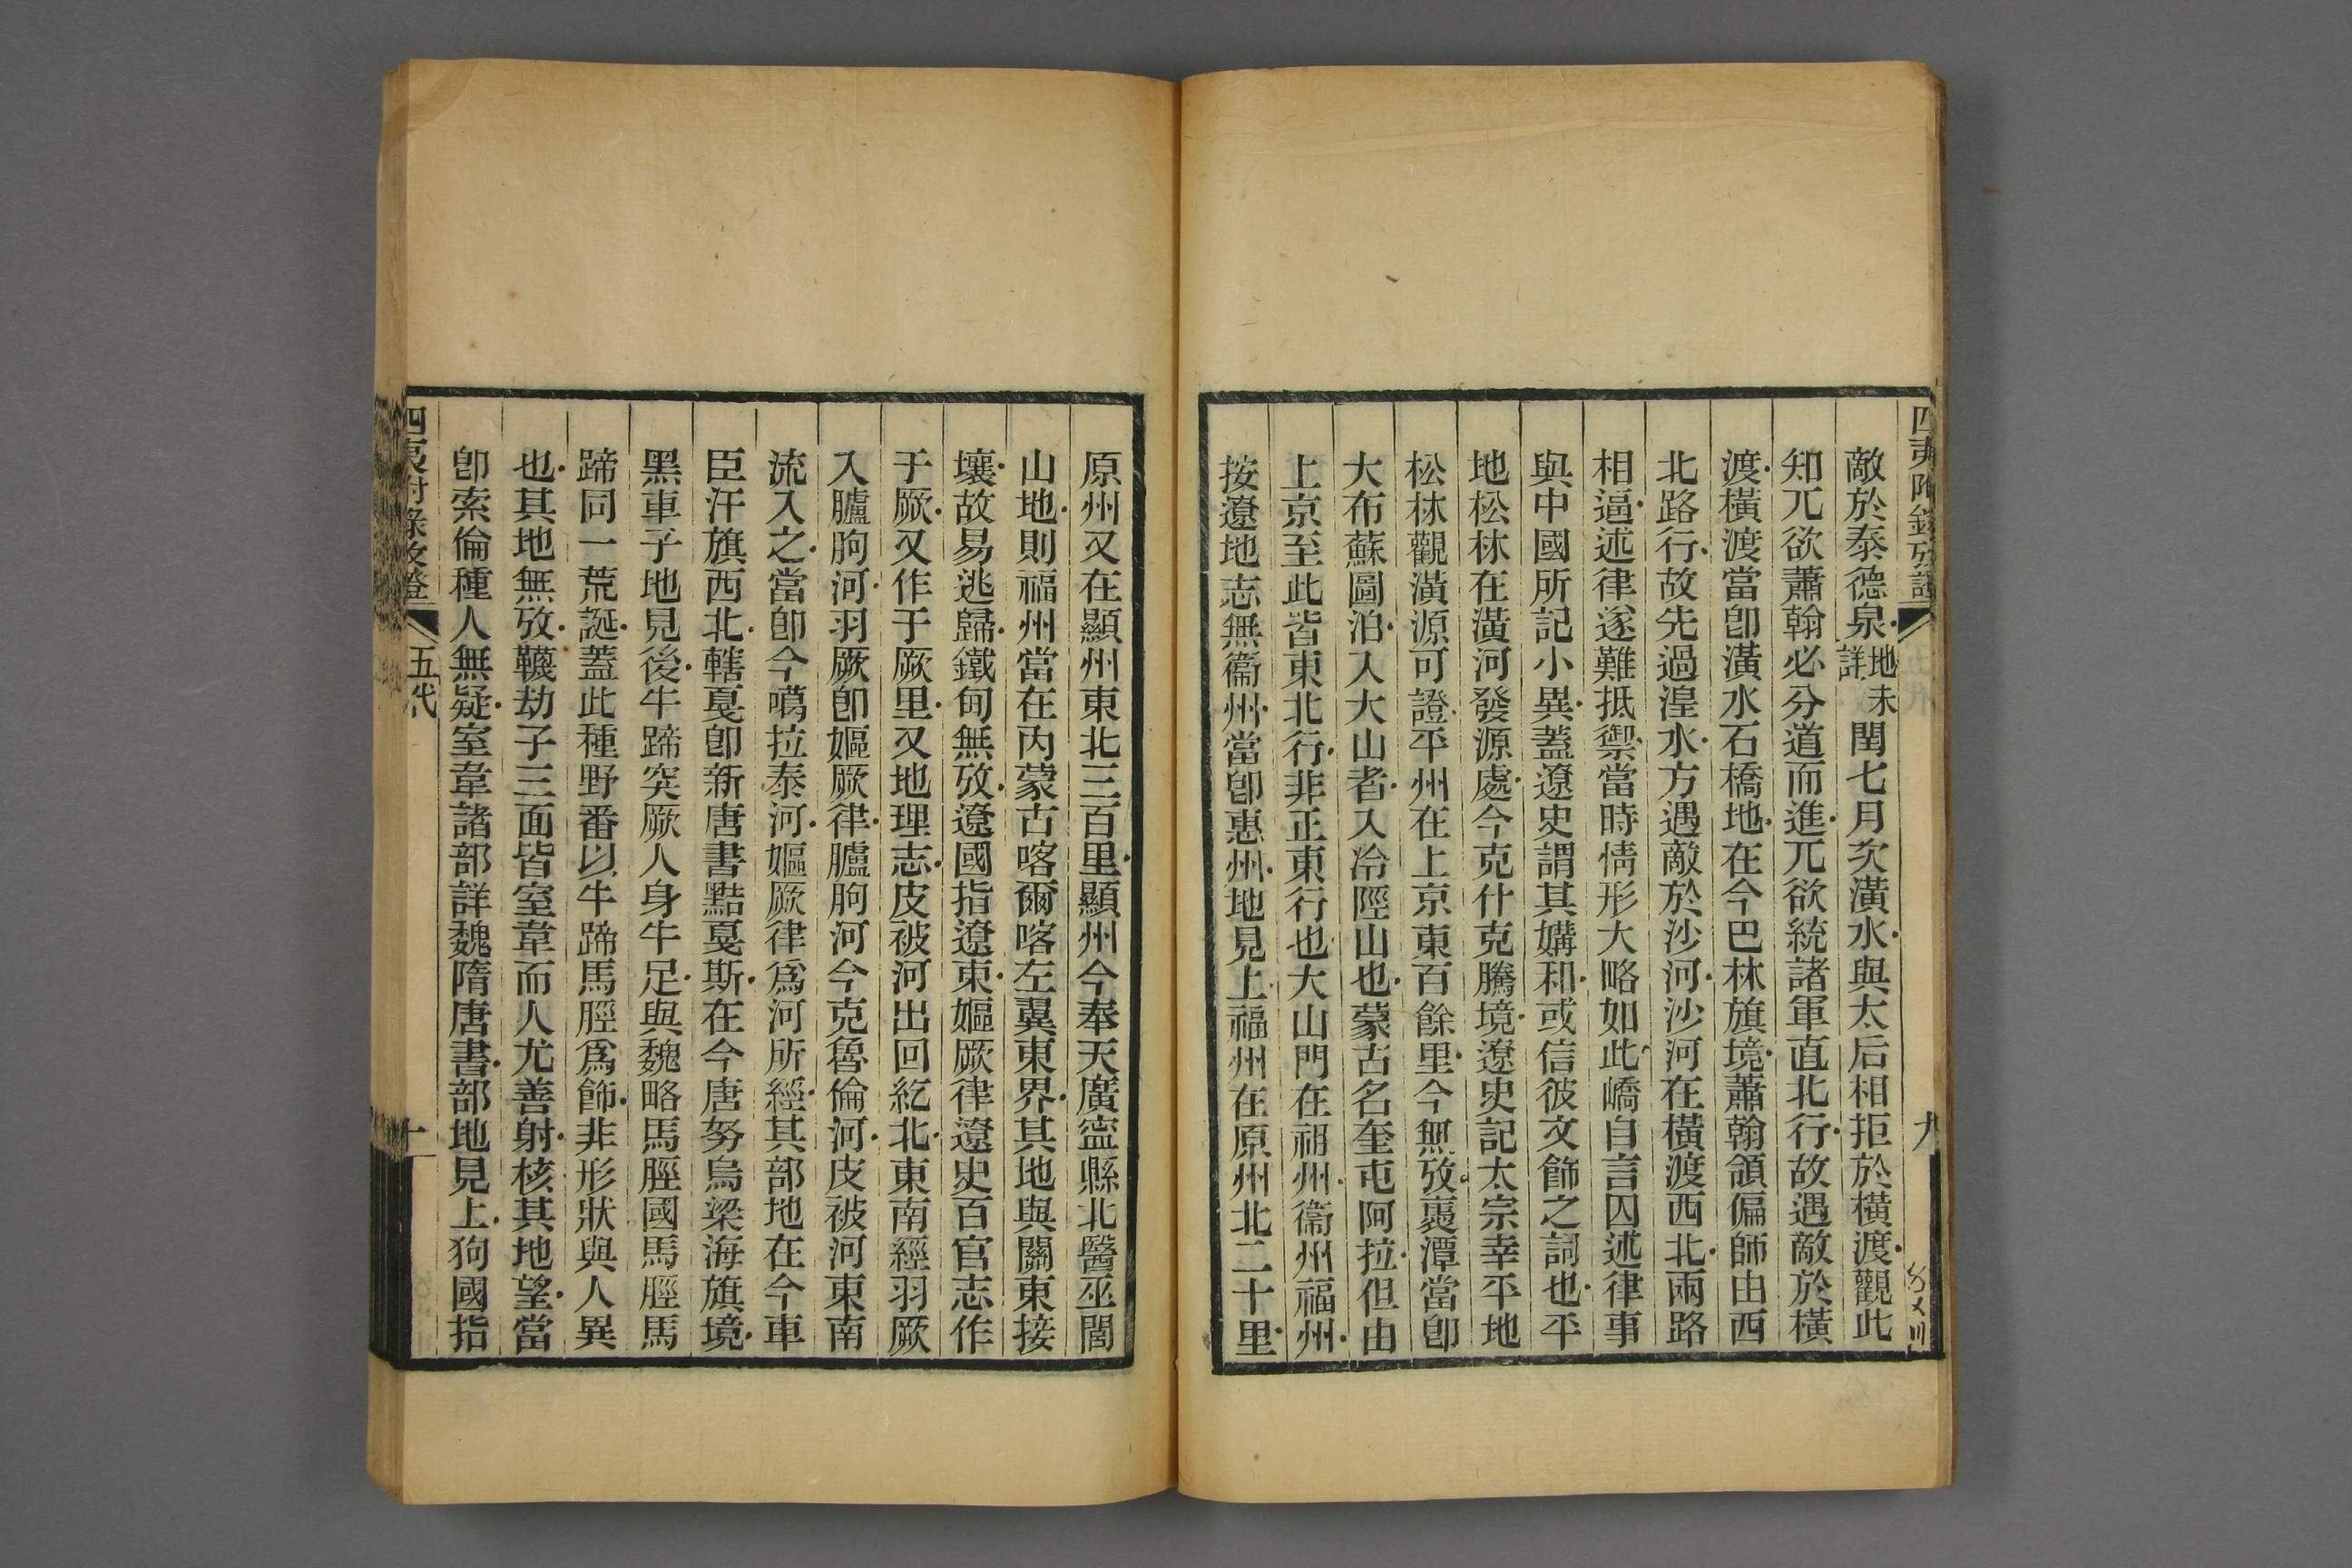 敵於泰德泉地未詳閏七月次潢水與太后相拒於橫渡觀此
知兀欲蕭翰必分道而進兀欲統諸軍直北行故遇敵於橫
渡橫渡當卽潢水石橋地在今巴林旗境蕭翰領偏師由西
北路行故先過湟水方遇敵於沙河沙河在橫渡西北兩路
相逼述律遂難抵禦當時情形大略如此嶠自言囚述律事
與中國所記小異蓋遼史謂其媾和或信彼文飾之詞也平
地松林在潢河發源處今克什克騰境遼史記太宗幸平地
松林觀潢源可證平州在上京東百餘里今無攷裹潭當卽
大布蘇圖泊入大山者入冷陘山也蒙古名奎屯阿拉但由
上京至此皆東北行非正東行也大山門在祖州衞州福州
按遼地志無衞州當卽惠州地見上福州在原州北二十里
四夷附錄攷證
九
原州又在顯州東北三百里顯州今奉天廣寍縣北醫巫閭
山地則福州當在內蒙古喀爾喀左翼東界其地與關東接
壤故易逃歸鐵甸無攷遼國指遼東嫗厥律遼史百官志作
于厥又作于厥里又地理志皮被河出回紇北東南經羽厥
入臚朐河羽厥卽嫗厥律臚朐河今克魯倫河皮被河東南
流入之當卽今噶拉泰河嫗厥律爲河所經其部地在今車
臣汗旗西北轄戛卽新唐書黠戛斯在今唐努烏梁海旗境
黑車子地見後牛蹄突厥人身牛足與魏略馬脛國馬脛馬
蹄同一荒誕蓋此種野番以牛蹄馬脛爲飾非形狀與人異
也其地無攷韈劫子三面皆室韋而人尤善射核其地望當
卽索倫種人無疑室韋諸部詳魏隋唐書部地見上狗國指
四夷附錄攷證
五代
十